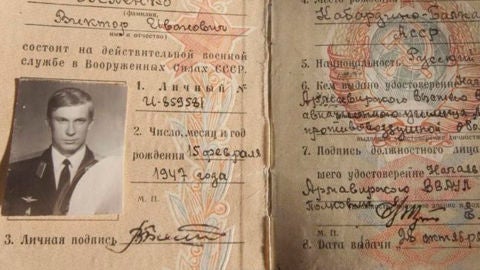 (фамилия,
Виктор Иванович
имя и отчество)
состоит на действительной военной
службе в Вооруженных Силах СССР.
1. Личный №
И-859581
2. Число, месяц и год
рождения 15 февраля
1947 года
М. П.
3. Личная подпись
Кабардино-Балка
АССР
5. Национальность Русский
6. Кем выдано удостоверение
Армавирского высшего в
авиа
противовоздушной обо
7. Подпись должностного лица
шего удостоверение Началь
Армавирского ВВАУЛ
Полковник
М. П.
8. Дата выдачи 26 октября